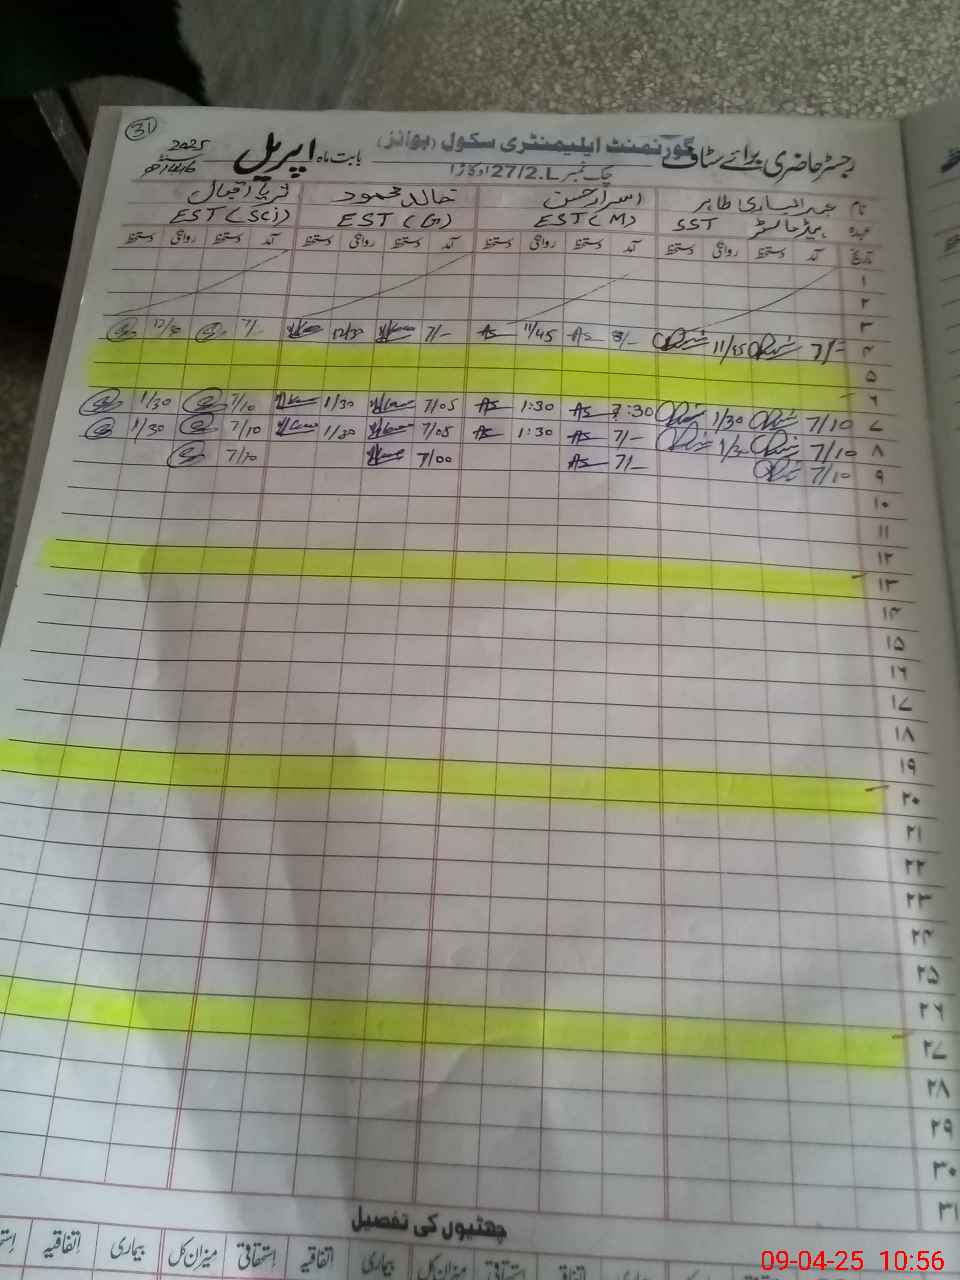 31
رجسٹر حاضری برائے سٹاف گورنمنٹ ایلیمنٹری سکول (بوائز) بابت ماہ اپریل 2025
چک نمبر 27/2.L اوکاڑا
نام عبدالباری طاہر اسرار حسن خالد محمود ثریا اقبال
عہدہ ہیڈماسٹر SST EST (M) EST (G) EST (Sci)
تاریخ آمد دستخط روانگی دستخط آمد دستخط روانگی دستخط آمد دستخط روانگی دستخط آمد دستخط روانگی دستخط
۱
۲
۳
۴ 7/- 11/45 8/- As 11/45 As 7/- 12/30 7/- 12/30
۵
۶
۷ 7/10 1/30 7:30 As 1:30 As 7/05 1/30 7/10 1/30
۸ 7/10 1/30 7/- As 1:30 As 7/05 1/30 7/10 1/30
۹ 7/10 7/- As 7/00 7/10
۱۰
۱۱
۱۲
۱۳
۱۴
۱۵
۱۶
۱۷
۱۸
۱۹
۲۰
۲۱
۲۲
۲۳
۲۴
۲۵
۲۶
۲۷
۲۸
۲۹
۳۰
۳۱
چھٹیوں کی تفصیل
بیماری اتفاقیہ استحقاقی میزان کل بیماری اتفاقیہ
09-04-25 10:56